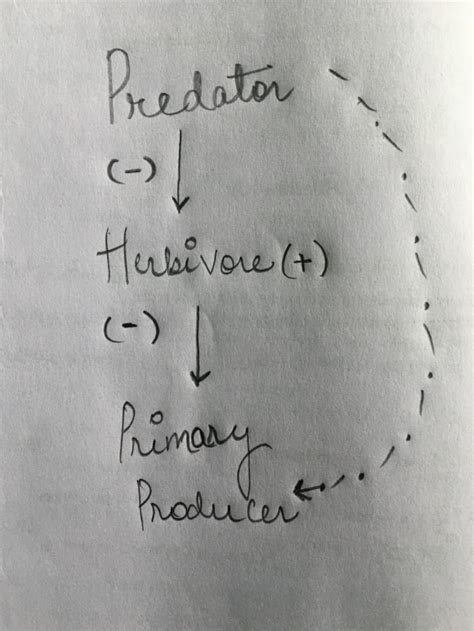 Predator
(-)
Herbivore (+)
(-)
Primary
Producer